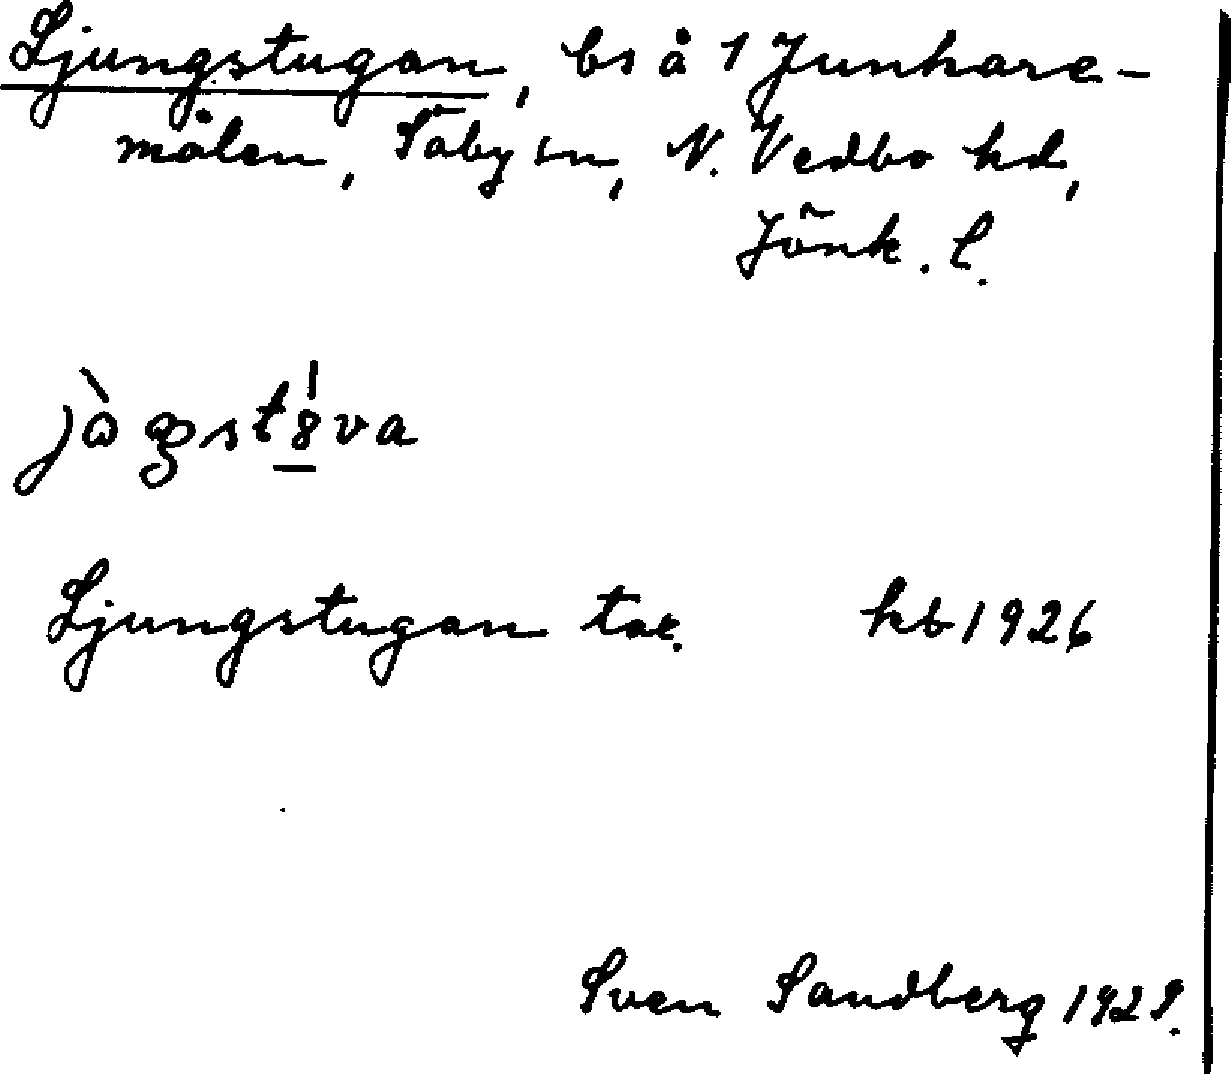 Ljungstugan, bs å 1 Junkare-
målen, Säby sn, N. Vedbo hd,
Jönk. l.
Ljungstugan tor. hb 1926
Sven Sandberg 1929.